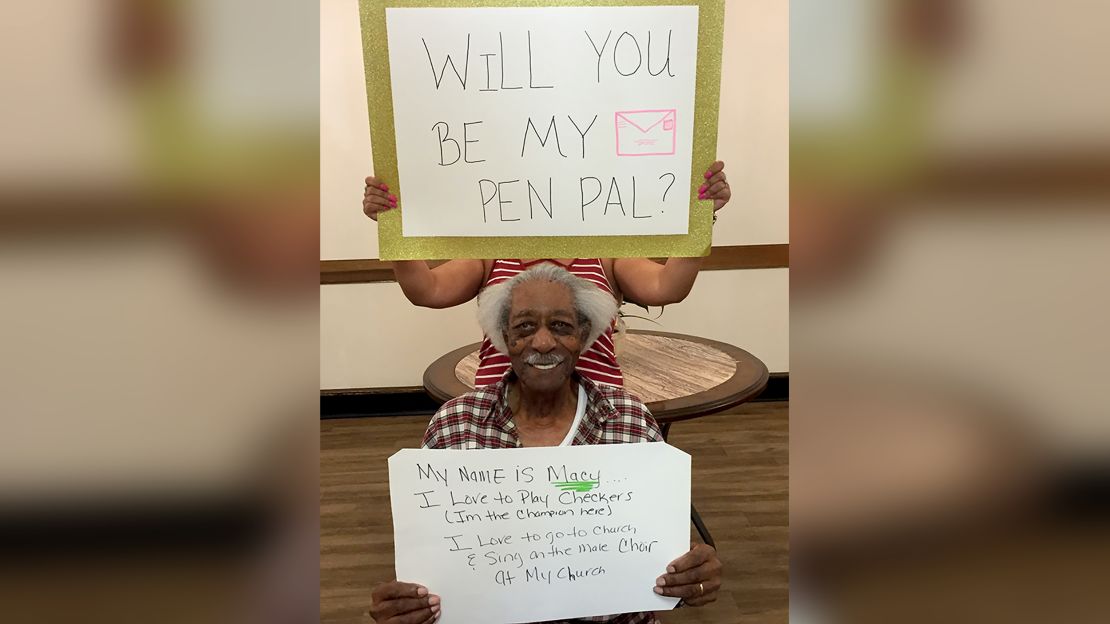 WILL YOU
BE MY
PEN PAL?
MY NAME iS Macy....
I Love to Play Checkers
(Im the Champion here)
I Love to go to Church
& Sing on the Male Choir
at My Church